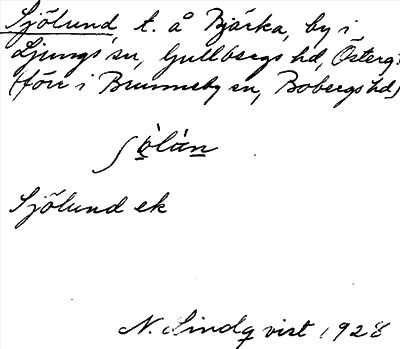 Sjölund, t. å Bjärka, by i
Ljungs sn, Gullbergs hd, Österg.
(förr i Brunneby sn, Bobergs hd)
Sjölund ek
N. Lindqvist 1928